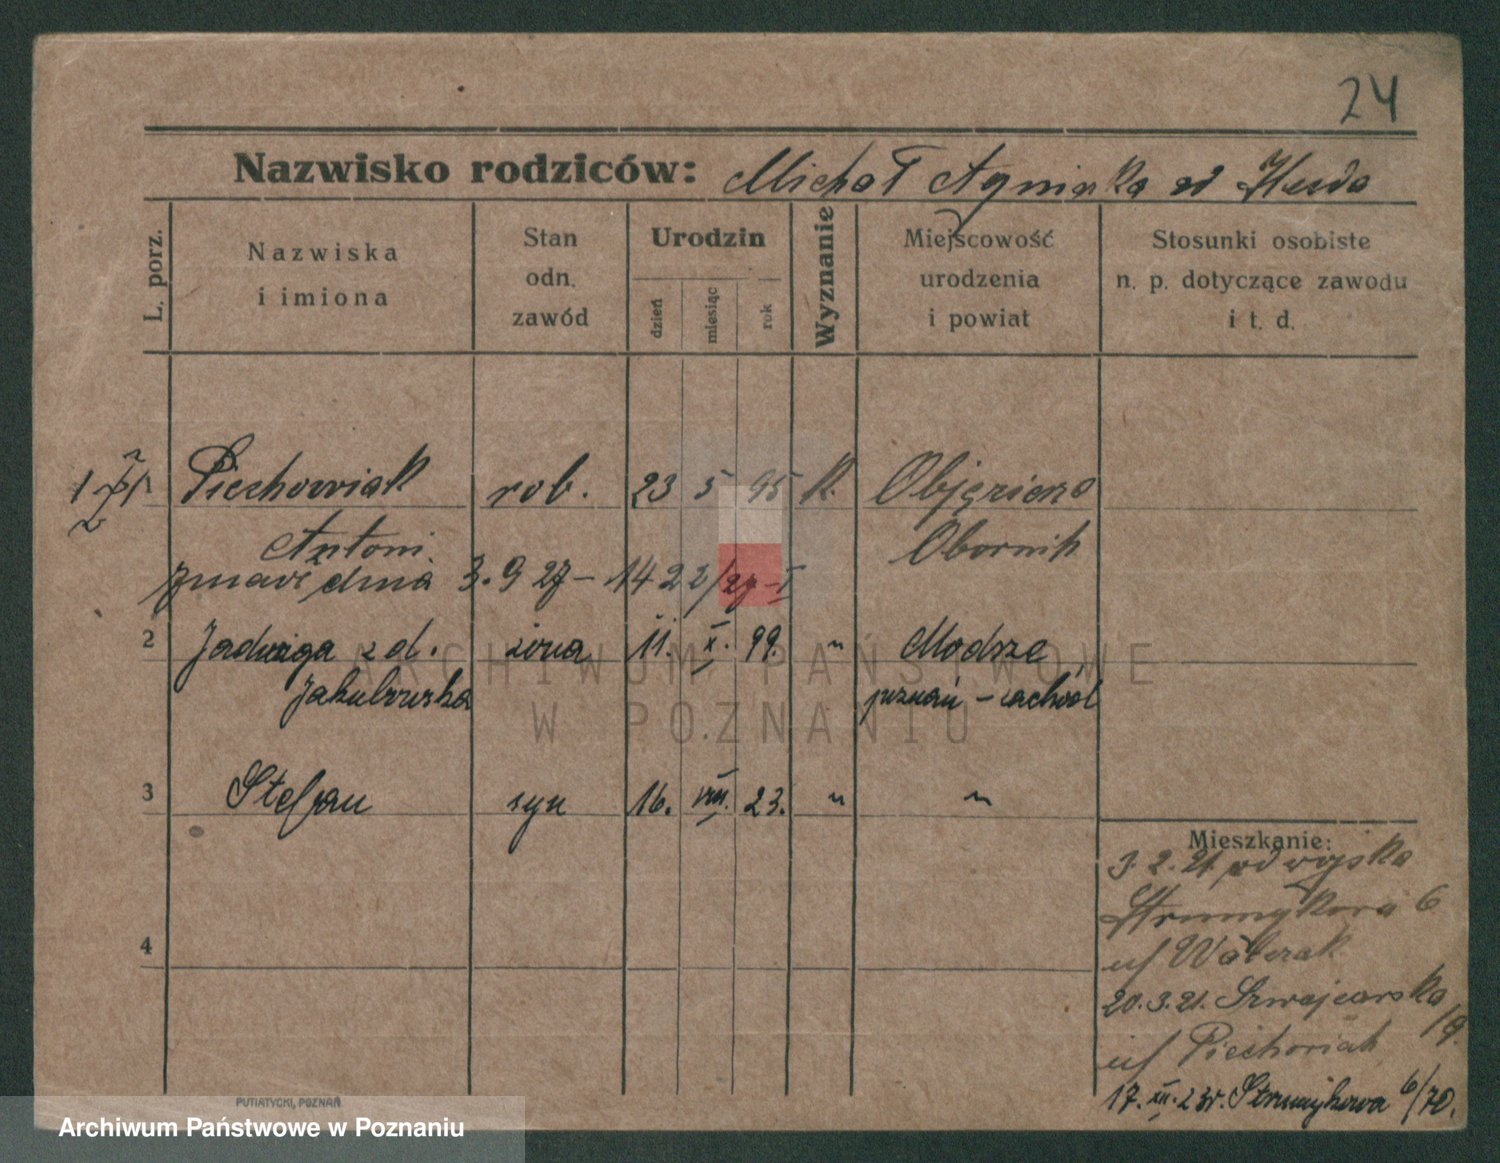 24
Nazwisko rodziców: Michał Agnieszka od Herda
L. porz.
Nazwiska
i imiona
Stan
odn.
zawód
Urodzin
dzień
miesiąc
rok
Wyznanie
Miejscowość
urodzenia
i powiat
Stosunki osobiste
n. p. dotyczące zawodu
i t. d.
1 Piechowiak rob. 23 5 95 k. Objezierze
Antoni Obornik
zmarł dnia 3.9 27 – 1422/27 – I
2 Jadwiga z d. żona 11. X. 99. " Modrze
Jakubowska poznań – zachód
3 Stefan syn 16. VIII. 23. " "
Mieszkanie:
3.2.21 od wojska
Strumykowa 6
u/ Walczak
20.3.21. Szwajcarska
19.
u/ Piechowiak
4
17.XII.23r. Strumykowa 6/70.
PUTIATYCKI, POZNAŃ
ARCHIWUM PAŃSTWOWE
W POZNANIU
Archiwum Państwowe w Poznaniu